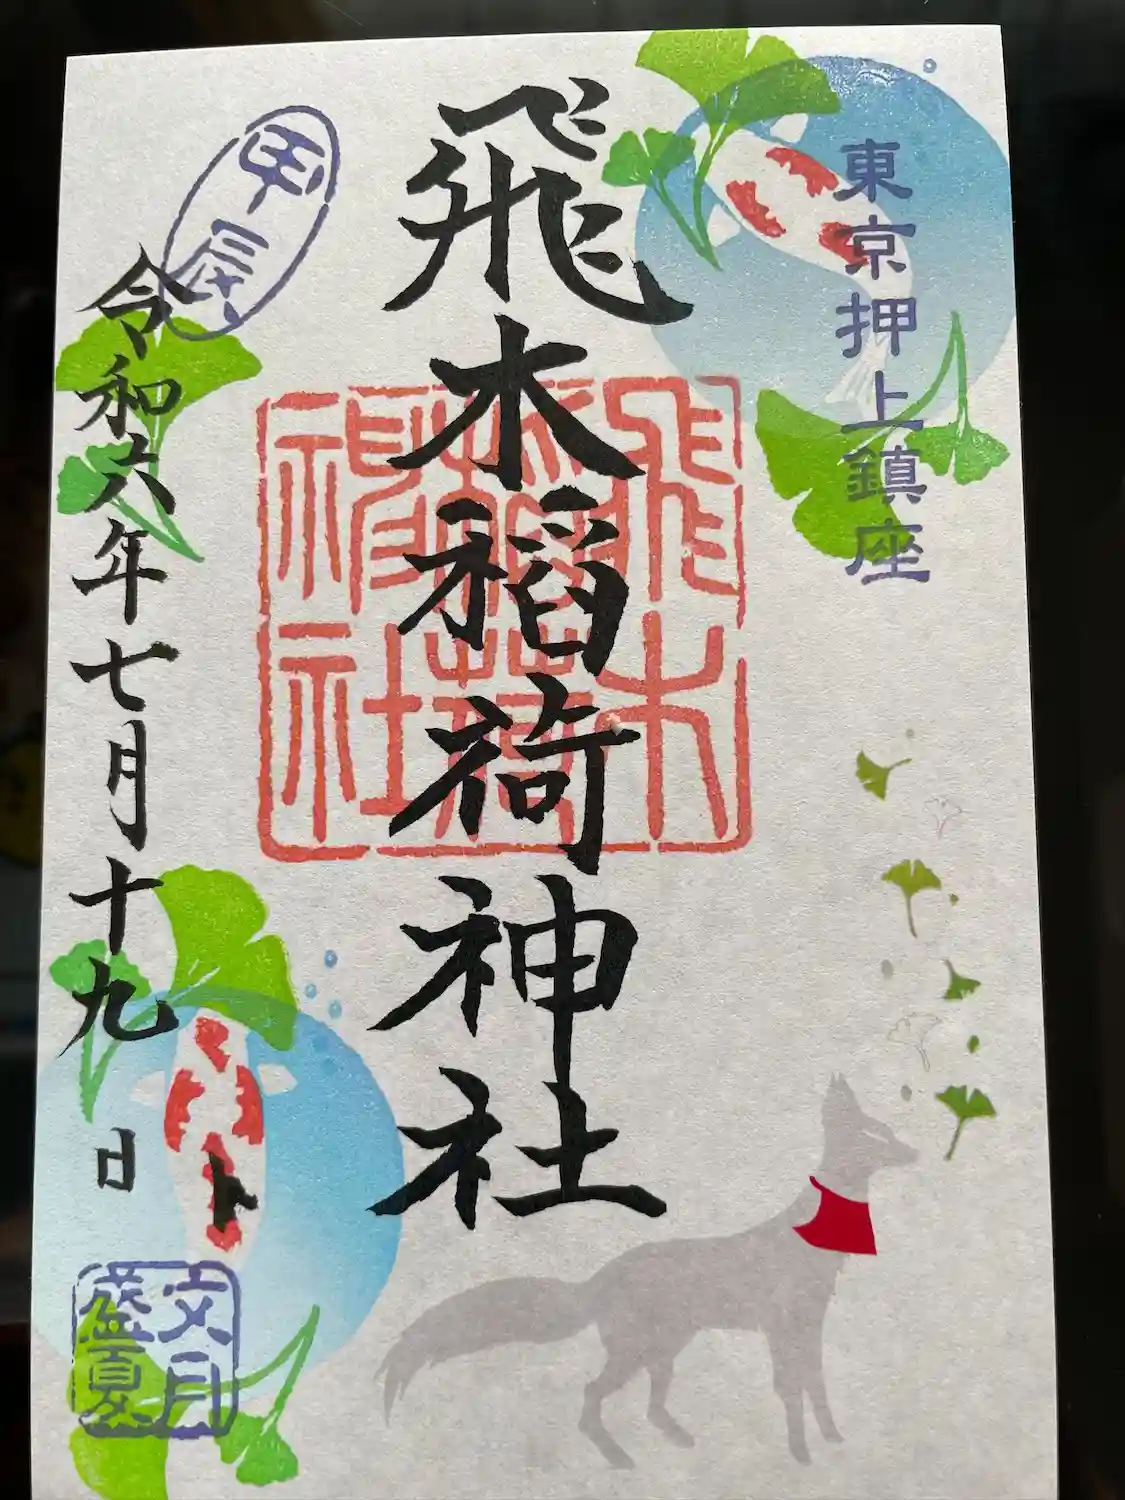 東京押上鎮座
飛木稲荷神社
飛木
稲荷
神社
甲辰
令和六年七月十九日
ト
文月
盛夏